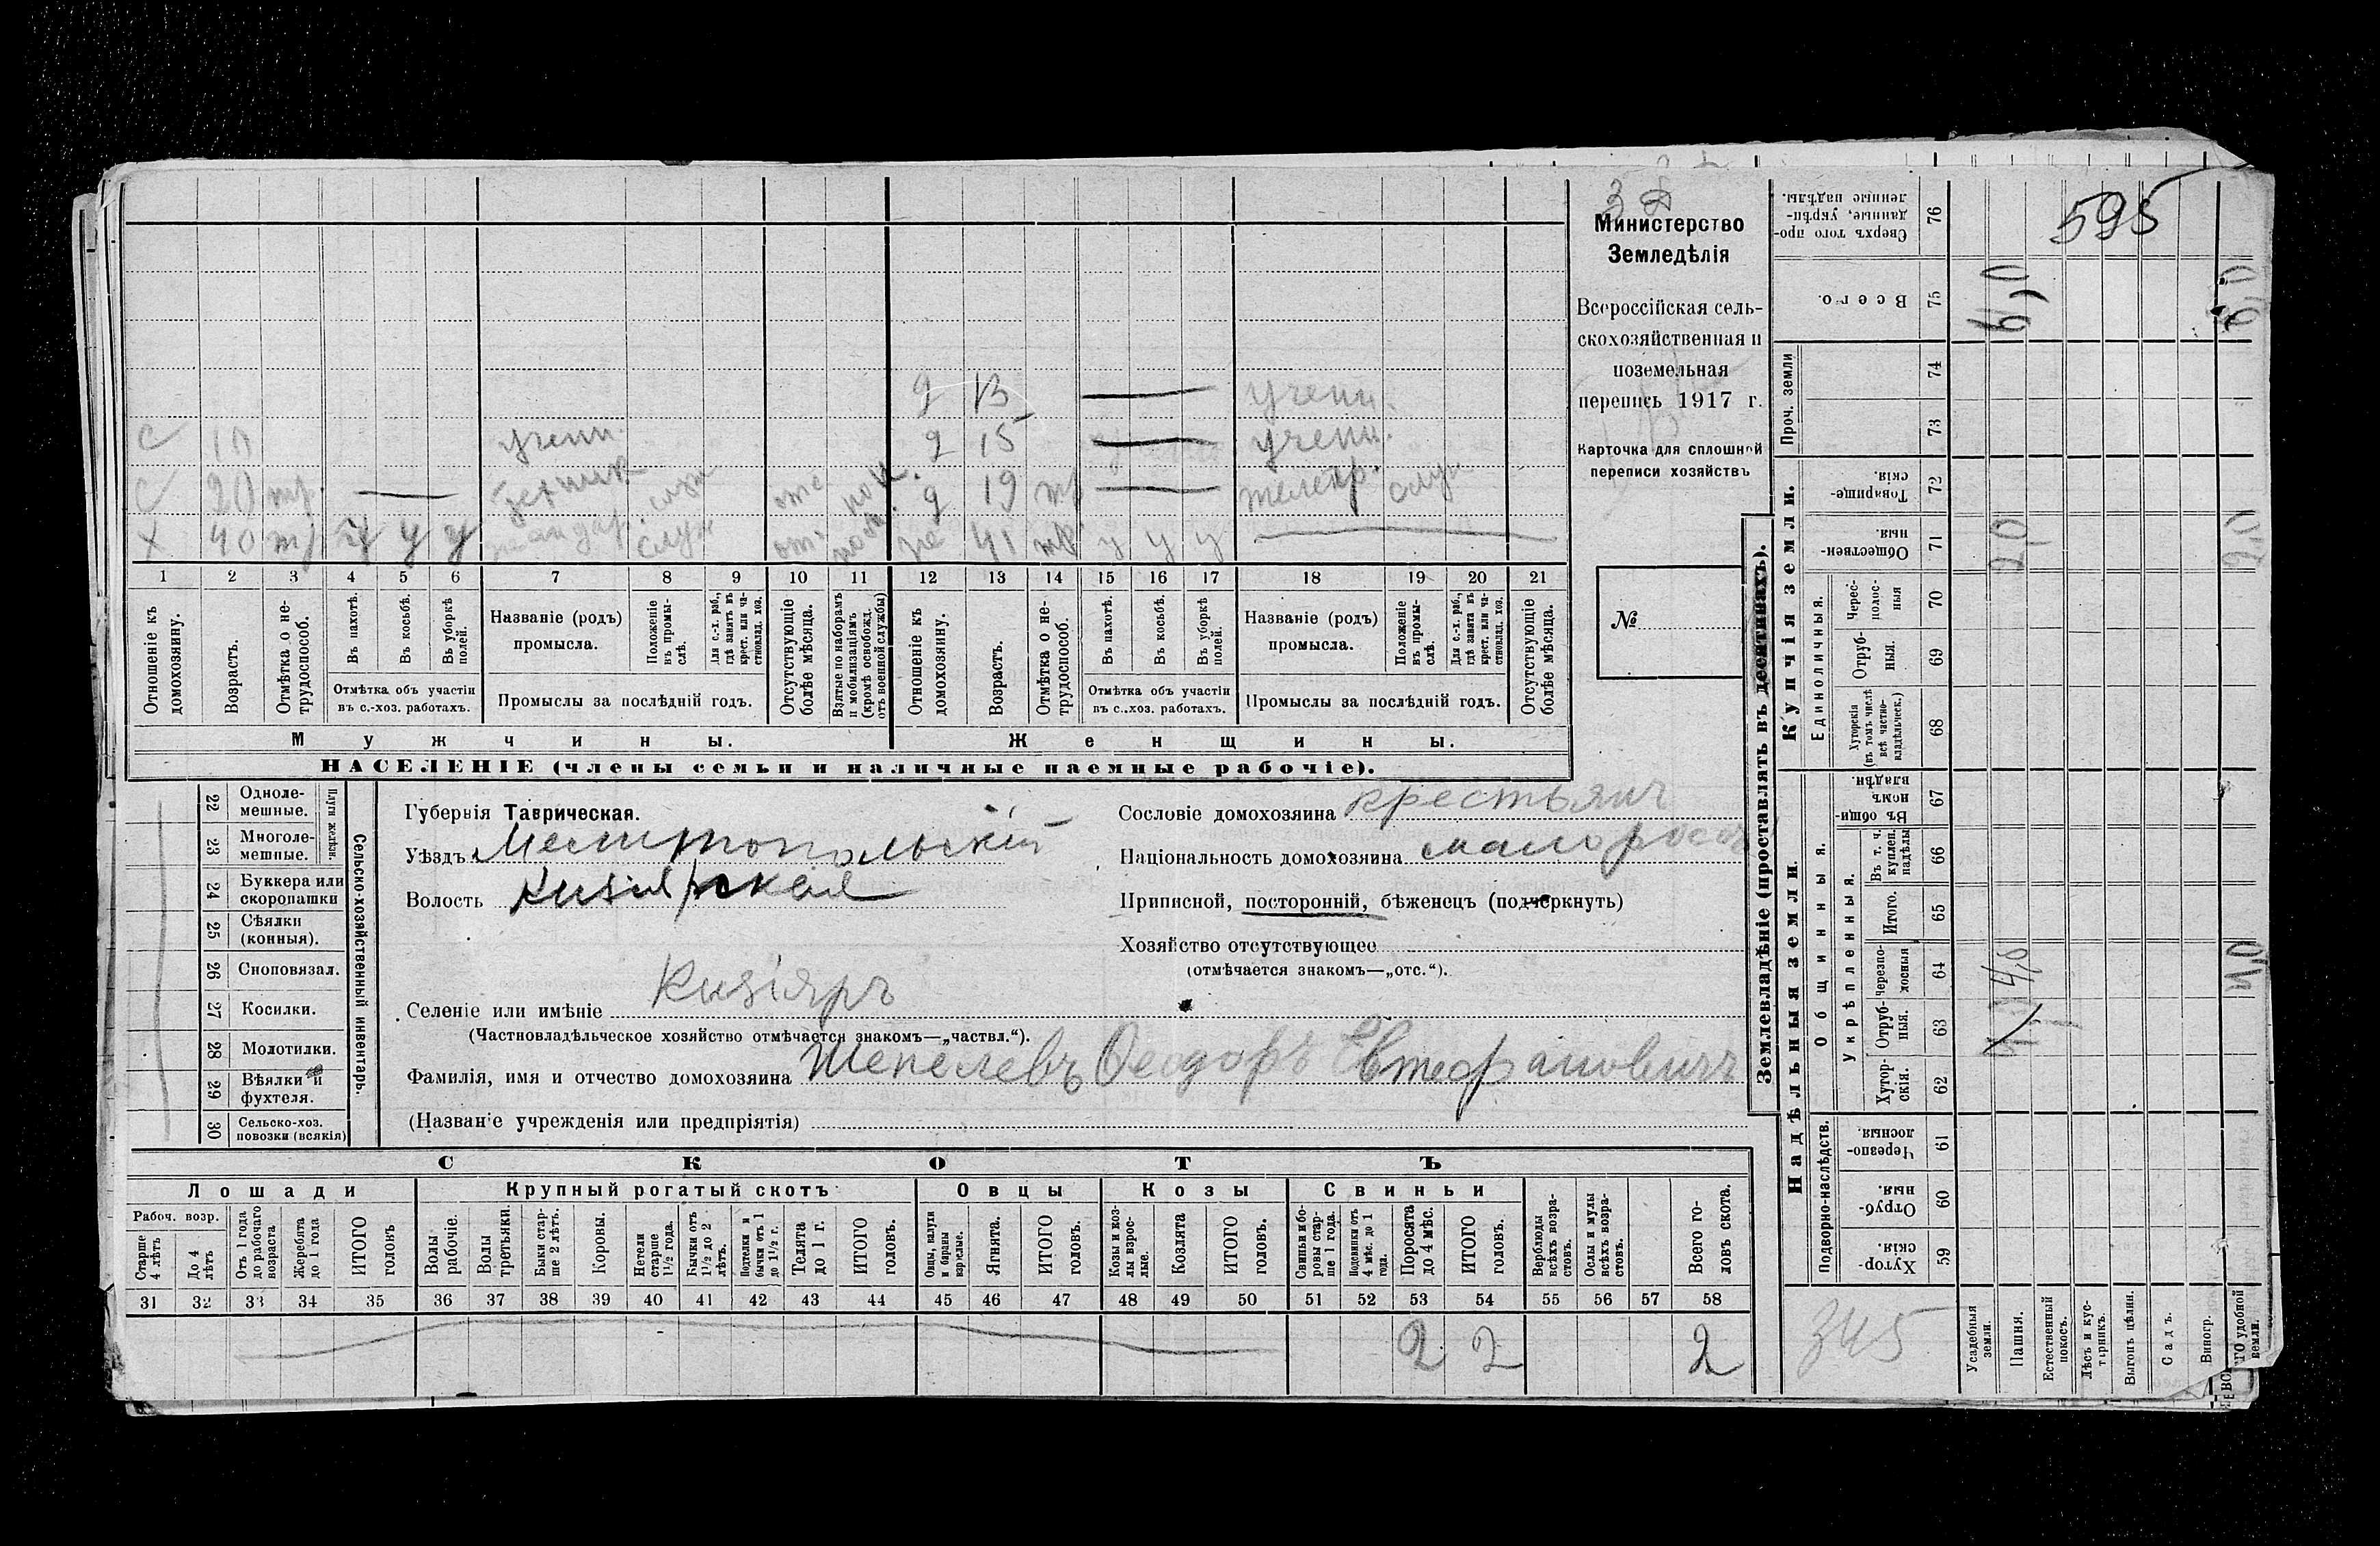 595
Министерство
Земледѣлія
Всероссійская сель-
скохозяйственная и
поземельная
перепись 1917 г.
Карточка для сплошной
переписи хозяйствъ
№
д 13 — учен.
с учен. д 15 — учен.
с 20 тр. — д 19 тр. — телегр. служ
х 40 тр. у у у служ же 41 тр. у у у —
1 2 3 4 5 6 7 8 9 10 11 12 13 14 15 16 17 18 19 20 21
Отношеніе къ домохозяину.
Возрастъ.
Отмѣтка о не-трудоспособ.
Въ пахотѣ.
Въ косьбѣ.
Въ уборкѣ полей.
Отмѣтка объ участіи
въ с.-хоз. работахъ.
Названіе (родъ)
промысла.
Положеніе въ промы-слѣ.
Для с.-х. раб., гдѣ занятъ въ крест. или ча-стновлад. хоз.
Промыслы за послѣдній годъ.
Отсутствующіе болѣе мѣсяца.
Взятые по наборамъ и мобилизаціямъ (кромѣ освобожд. отъ военной службы)
Отношеніе къ домохозяину.
Возрастъ.
Отмѣтка о не-трудоспособ.
Въ пахотѣ.
Въ косьбѣ.
Въ уборкѣ полей.
Отмѣтка объ участіи
въ с.-хоз. работахъ.
Названіе (родъ)
промысла.
Положеніе въ промы-слѣ.
Для с.-х. раб., гдѣ занята въ крест. или ча-стновлад. хоз.
Промыслы за послѣдній годъ.
Отсутствующіе болѣе мѣсяца.
Мужчины.
Женщины.
НАСЕЛЕНІЕ (члены семьи и наличные наемные рабочіе).
22 Одноле-мешные.
23 Многоле-мешные.
Плуги желѣзн.
24 Буккера или скоропашки
25 Сѣялки (конныя).
26 Сноповязал.
27 Косилки.
28 Молотилки.
29 Вѣялки и фухтеля.
30 Сельско-хоз. повозки (всякія)
Сельско-хозяйственный инвентарь.
Губернія Таврическая.
Уѣздъ Мелитопольскій
Волость Кизіярская
Селеніе или имѣніе Кизіяръ
(Частновладѣльческое хозяйство отмѣчается знакомъ—„частвл.“).
Фамилія, имя и отчество домохозяина Шепелевъ Феодоръ
(Названіе учрежденія или предпріятія)
Сословіе домохозяина крестьян
Національность домохозяина малоросс
Приписной, посторонній, бѣженецъ (подчеркнуть)
Хозяйство отсутствующее
(отмѣчается знакомъ—„отс.“).
СКОТЪ
Лошади
Крупный рогатый скотъ
Овцы
Козы
Свиньи
Рабоч. возр.
Старше 4 лѣтъ
До 4 лѣтъ
Отъ 1 года до рабочаго возраста
Жеребята до 1 года
ИТОГО головъ
Волы рабочіе.
Волы третьяки.
Быки стар-ше 2 лѣтъ.
Коровы.
Нетели старше 1½ года.
Бычки отъ 1½ до 2 лѣтъ.
Подтелки и бычки отъ 1 до 1½ г.
Телята до 1 г.
ИТОГО головъ.
Овцы, валухи и бараны взрослые.
Ягнята.
ИТОГО головъ.
Козы и коз-лы взрос-лые.
Козлята
ИТОГО головъ.
Свиньи и бо-ровы стар-ше 1 года.
Подсвинки отъ 4 мѣс. до 1 года.
Поросята до 4 мѣс.
ИТОГО головъ.
Верблюды всѣхъ возра-стовъ.
Ослы и мулы всѣхъ возра-стовъ.
Всего го-ловъ скота.
31 32 33 34 35 36 37 38 39 40 41 42 43 44 45 46 47 48 49 50 51 52 53 54 55 56 57 58
2 2 2
Землевладѣніе (проставлять въ десятинахъ).
Сверхъ того про-данные, укрѣп-ленные надѣлы. 76
Всего. 75 6,0 6,0
Проч. земли
74
73
Купчія земли.
Товарище-скія. 72
Обществен-ныя. 71 2,0 2,0
Единоличныя.
Черес-полос-ныя 70
Отруб-ныя. 69
Хуторскія (въ томъ числѣ всѣ частно-владѣльческ.) 68
Надѣльныя земли.
Общинныя.
Въ общин-номъ владѣн. 67
Въ т. ч. куплен. надѣлы 66
Укрѣпленныя.
Итого. 65
Черезпо-лосныя 64 4,0 4,0
Отруб-ныя. 63
Хутор-скія. 62
Подворно-наслѣдств.
Черезпо-лосныя 61
Отруб-ныя. 60
Хутор-скія. 59
345
Усадебныя земли.
Пашня.
Естественный покосъ.
Лѣсъ и кус-тарникъ.
Выгонъ цѣлин.
Садъ.
Виногр.
удобной земли.